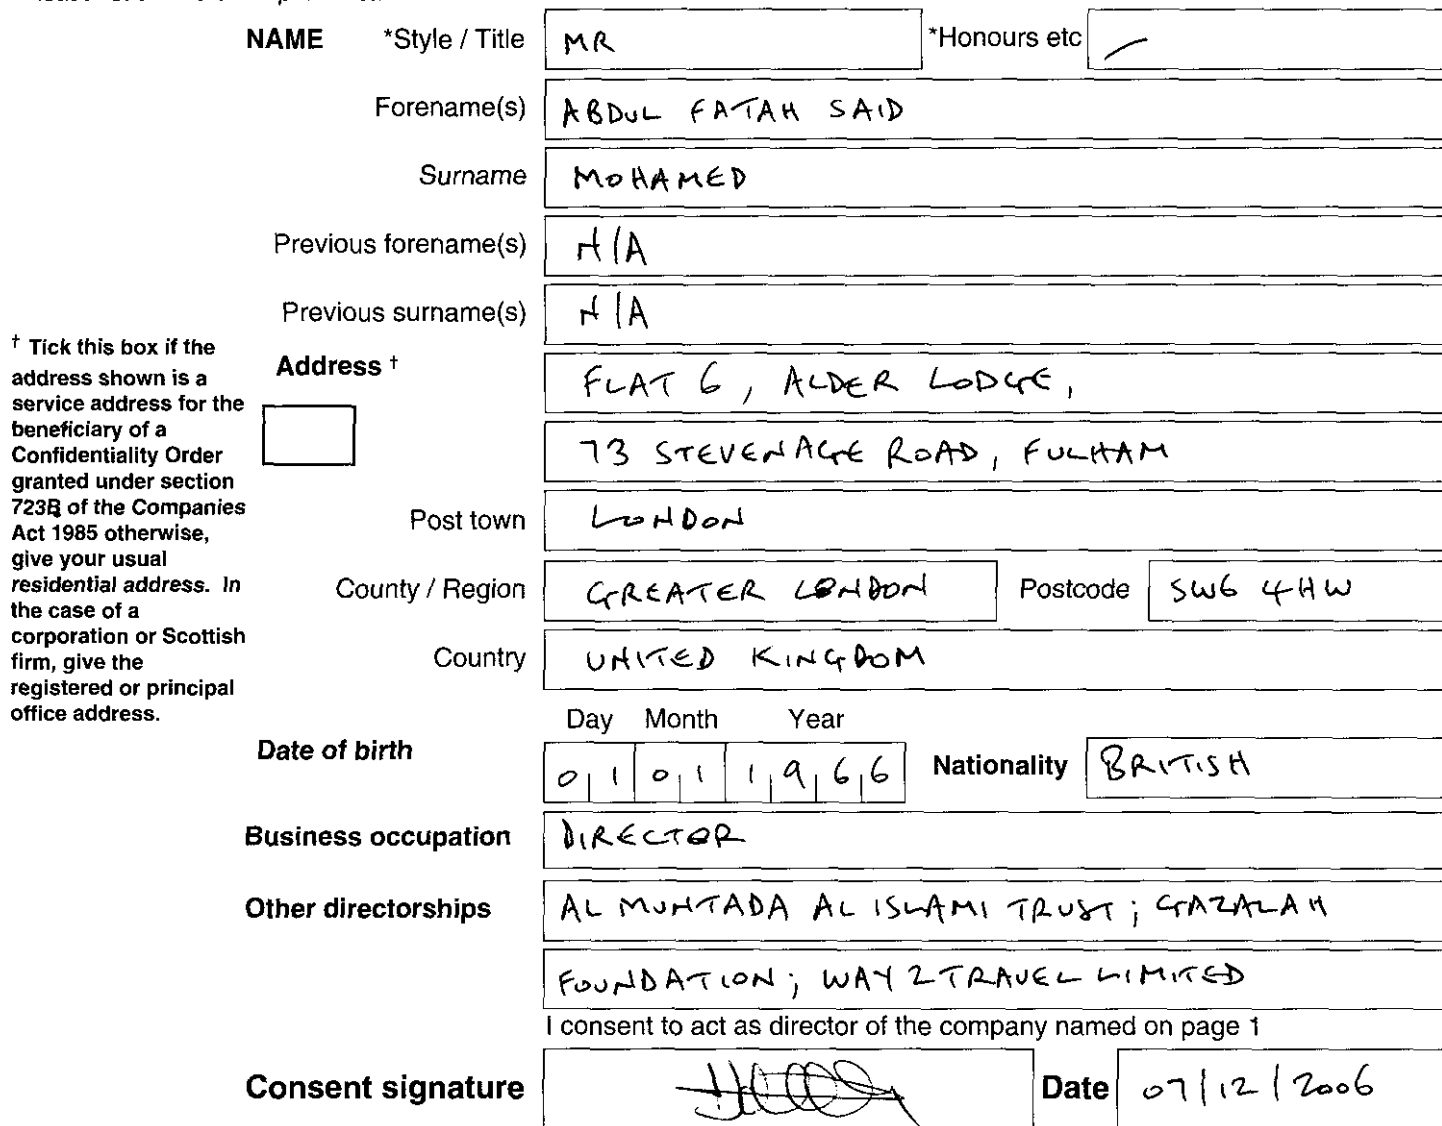 NAME *Style / Title MR *Honours etc —
Forename(s) ABDUL FATAH SAID
Surname MOHAMED
Previous forename(s) N/A
Previous surname(s) N/A
† Tick this box if the
address shown is a
service address for the
beneficiary of a
Confidentiality Order
granted under section
723B of the Companies
Act 1985 otherwise,
give your usual
residential address. In
the case of a
corporation or Scottish
firm, give the
registered or principal
office address.
Address † FLAT 6, ALDER LODGE,
73 STEVENAGE ROAD, FULHAM
Post town LONDON
County / Region GREATER LONDON Postcode SW6 4HW
Country UNITED KINGDOM
Day Month Year
Date of birth 01 01 1966 Nationality BRITISH
Business occupation DIRECTOR
Other directorships AL MUNTADA AL ISLAMI TRUST; GAZALAH
FOUNDATION; WAY 2 TRAVEL LIMITED
I consent to act as director of the company named on page 1
Consent signature Date 07/12/2006